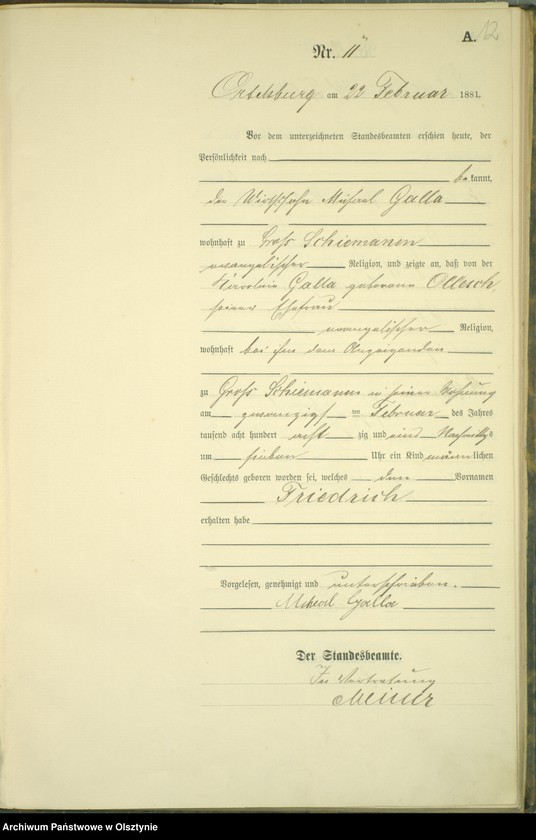 A. 12
Nr. 11
Ortelsburg am 22 Februar 1881.
Vor dem unterzeichneten Standesbeamten erschien heute, der
Persönlichkeit nach
bekannt,
der Wirthssohn Michael Galla
wohnhaft zu Groß Schiemanen
evangelischer Religion, und zeigte an, daß von der
Karoline Galla geborene Ollesch,
seiner Ehefrau
evangelischer Religion,
wohnhaft bei ihm dem Anzeigenden
zu Groß Schiemanen in seiner Wohnung
am zwanzigsten Februar des Jahres
tausend acht hundert achtzig und eins Nachmittags
um sieben Uhr ein Kind männlichen
Geschlechts geboren worden sei, welches den Vornamen
Friedrich
erhalten habe
Vorgelesen, genehmigt und unterschrieben.
Galla
Der Standesbeamte.
In Vertretung
Archiwum Państwowe w Olsztynie